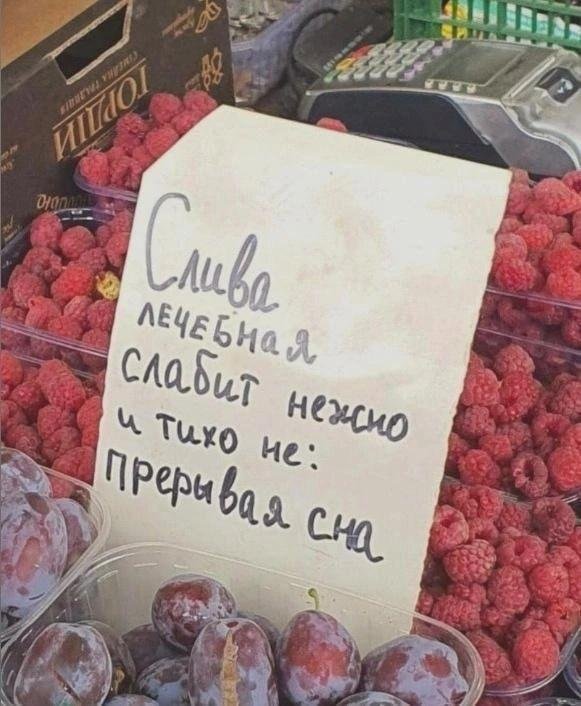 ГОРДІЙ
Слива
лечебная
слабит нежно
и тихо не:
прерывая сна